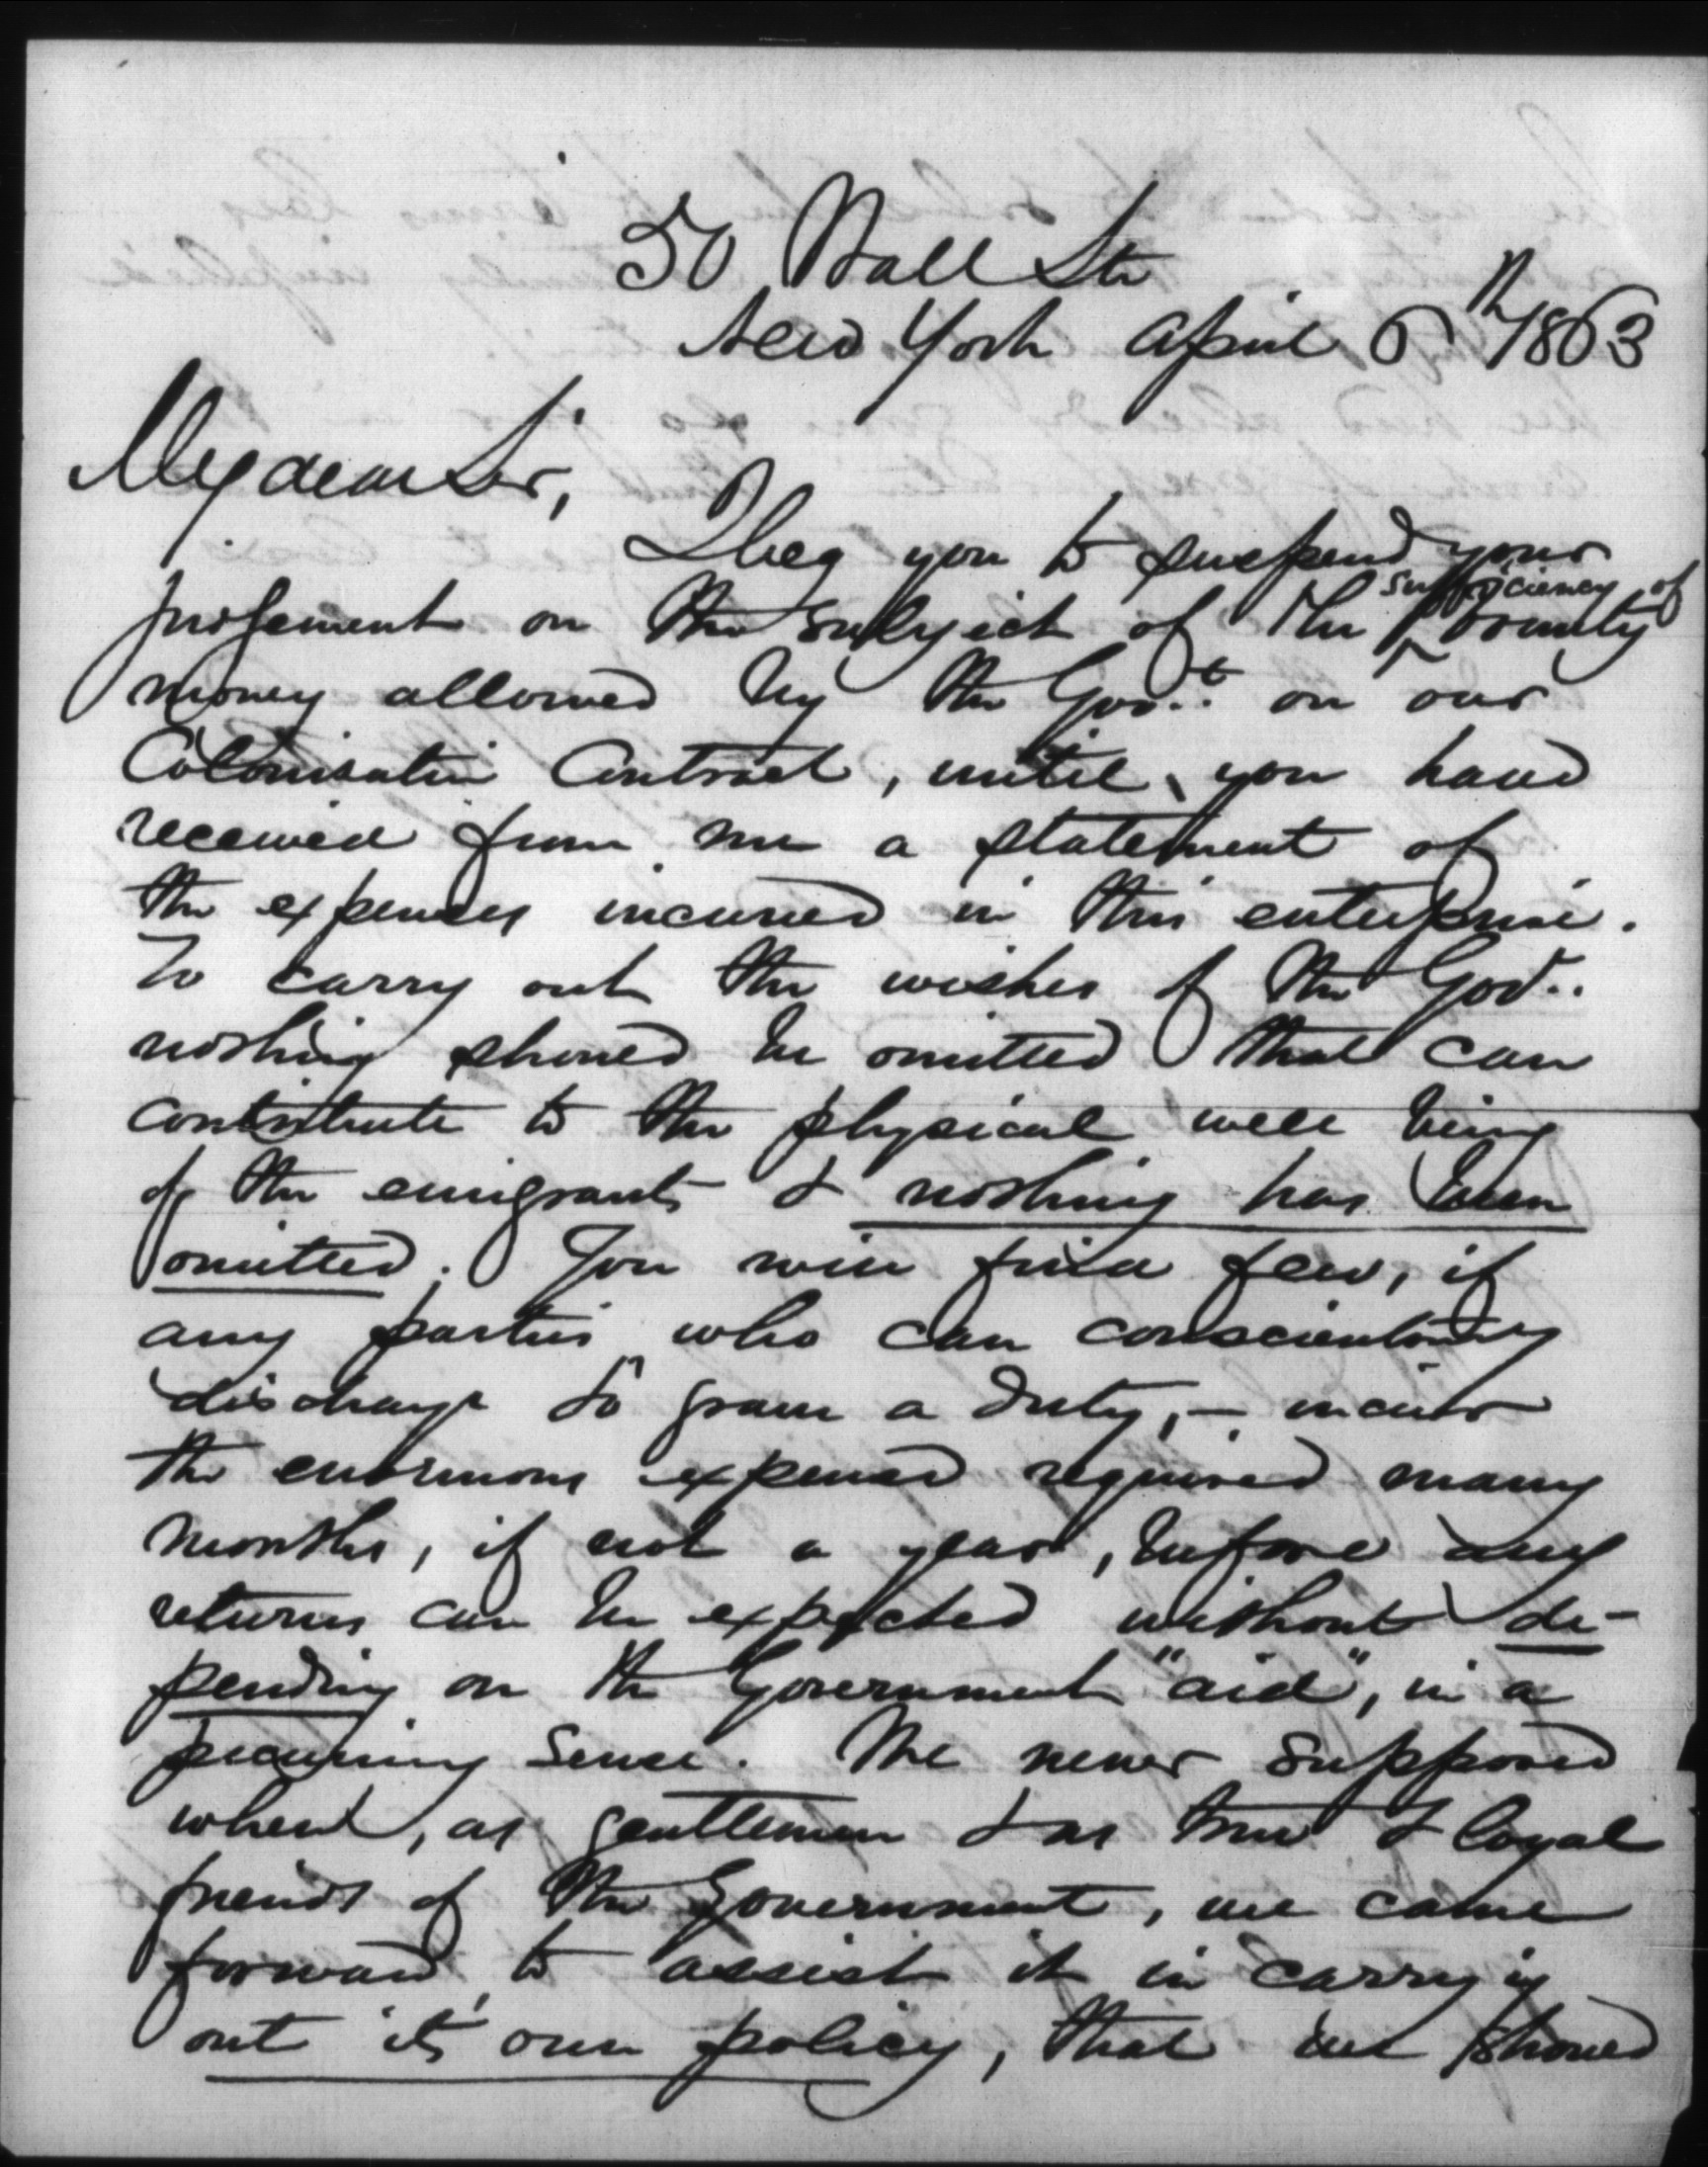 50 Wall Str
New York April 6th 1863
My dear Sir,
I beg you to suspend your
sufficiency of
judgement on the subject of the bounty
money allowed by the Govt. on our
Colonisation Contract, until you have
received from me a statement of
the expenses incurred in this enterprise.
To carry out the wishes of the Gov..
nothing should be omitted that can
contribute to the physical well being
of the emigrants & nothing has been
omitted. You will find few, if
any parties who can conscientiously
discharge so grave a duty, - incur
the enormous expense required many
months, if not a year, before any
returns can be expected without de-
pending on the Government "aid", in a
pecuniary sense. We never supposed
when, as gentlemen & as true & loyal
friends of the Government, we came
forward to assist it in carrying
out its own policy, that we should